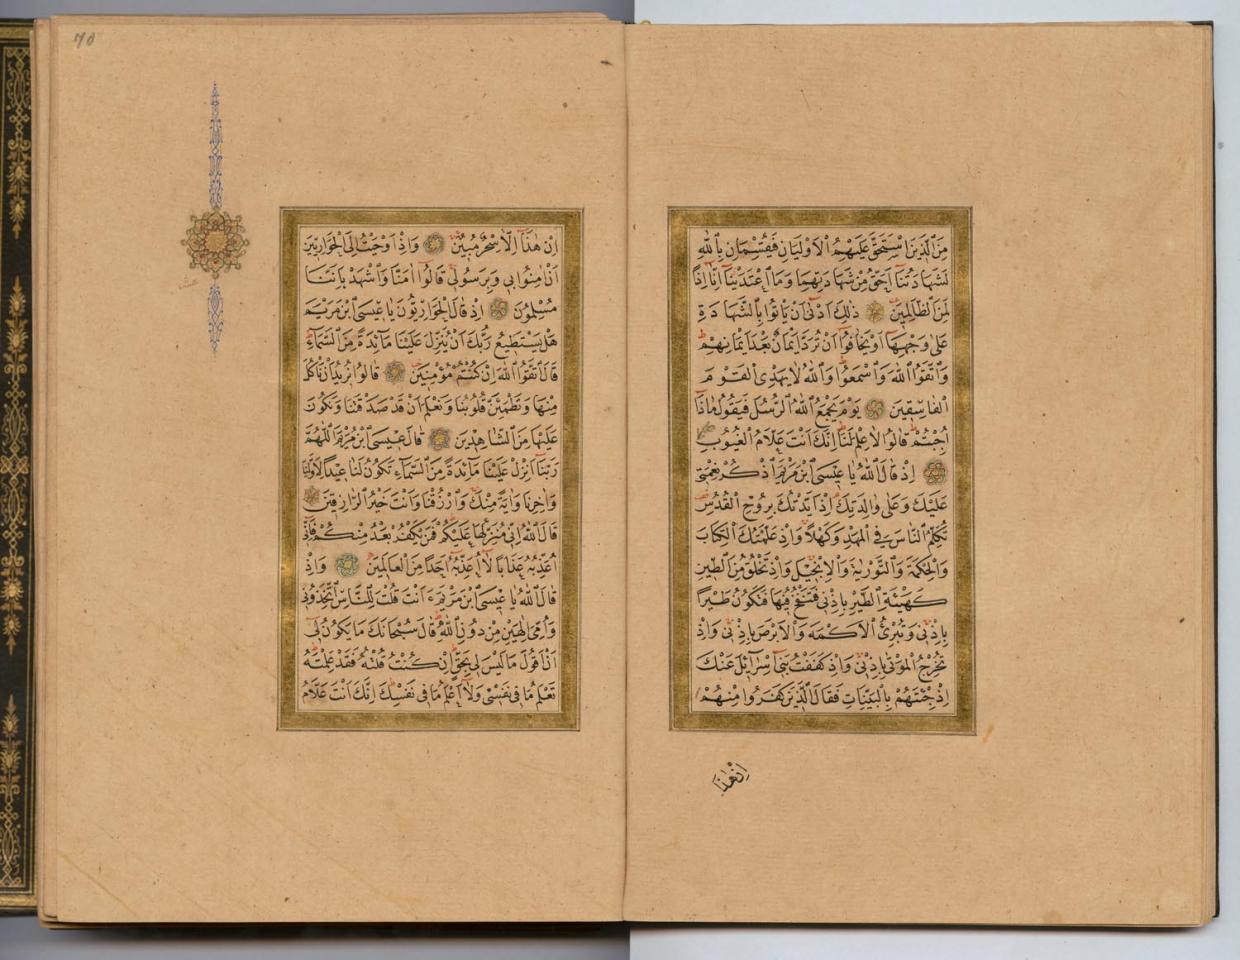 مِنَ الَّذِينَ اسْتَحَقَّ عَلَيْهِمُ الْاَوْلَيَانِ فَيُقْسِمَانِ بِاللّٰهِ
لَشَهَادَتُنَا اَحَقُّ مِنْ شَهَادَتِهِمَا وَمَا اعْتَدَيْنَا اِنَّا اِذًا
لَمِنَ الظَّالِمِينَ ذٰلِكَ اَدْنٰى اَنْ يَاْتُوا بِالشَّهَادَةِ
عَلٰى وَجْهِهَا اَوْ يَخَافُوا اَنْ تُرَدَّ اَيْمَانٌ بَعْدَ اَيْمَانِهِمْ
وَاتَّقُوا اللّٰهَ وَاسْمَعُوا وَاللّٰهُ لَا يَهْدِى الْقَوْمَ
الْفَاسِقِينَ يَوْمَ يَجْمَعُ اللّٰهُ الرُّسُلَ فَيَقُولُ مَاذَا
اُجِبْتُمْ قَالُوا لَا عِلْمَ لَنَا اِنَّكَ اَنْتَ عَلَّامُ الْغُيُوبِ
اِذْ قَالَ اللّٰهُ يَا عِيسَى ابْنَ مَرْيَمَ اذْكُرْ نِعْمَتِى
عَلَيْكَ وَعَلٰى وَالِدَتِكَ اِذْ اَيَّدْتُكَ بِرُوحِ الْقُدُسِ
تُكَلِّمُ النَّاسَ فِى الْمَهْدِ وَكَهْلًا وَاِذْ عَلَّمْتُكَ الْكِتَابَ
وَالْحِكْمَةَ وَالتَّوْرٰيةَ وَالْاِنْجِيلَ وَاِذْ تَخْلُقُ مِنَ الطِّينِ
كَهَيْئَةِ الطَّيْرِ بِاِذْنِى فَتَنْفُخُ فِيهَا فَتَكُونُ طَيْرًا
بِاِذْنِى وَتُبْرِئُ الْاَكْمَهَ وَالْاَبْرَصَ بِاِذْنِى وَاِذْ
تُخْرِجُ الْمَوْتٰى بِاِذْنِى وَاِذْ كَفَفْتُ بَنِى اِسْرَائِلَ عَنْكَ
اِذْ جِئْتَهُمْ بِالْبَيِّنَاتِ فَقَالَ الَّذِينَ كَفَرُوا مِنْهُمْ
اِنْ هٰذَا
اِنْ هٰذَا اِلَّا سِحْرٌ مُبِينٌ وَاِذْ اَوْحَيْتُ اِلَى الْحَوَارِيِّينَ
اَنْ اٰمِنُوا بِى وَبِرَسُولِى قَالُوا اٰمَنَّا وَاشْهَدْ بِاَنَّنَا
مُسْلِمُونَ اِذْ قَالَ الْحَوَارِيُّونَ يَا عِيسَى ابْنَ مَرْيَمَ
هَلْ يَسْتَطِيعُ رَبُّكَ اَنْ يُنَزِّلَ عَلَيْنَا مَائِدَةً مِنَ السَّمَاءِ
قَالَ اتَّقُوا اللّٰهَ اِنْ كُنْتُمْ مُؤْمِنِينَ قَالُوا نُرِيدُ اَنْ نَاْكُلَ
مِنْهَا وَتَطْمَئِنَّ قُلُوبُنَا وَنَعْلَمَ اَنْ قَدْ صَدَقْتَنَا وَنَكُونَ
عَلَيْهَا مِنَ الشَّاهِدِينَ قَالَ عِيسَى ابْنُ مَرْيَمَ اللّٰهُمَّ
رَبَّنَا اَنْزِلْ عَلَيْنَا مَائِدَةً مِنَ السَّمَاءِ تَكُونُ لَنَا عِيدًا لِاَوَّلِنَا
وَاٰخِرِنَا وَاٰيَةً مِنْكَ وَارْزُقْنَا وَاَنْتَ خَيْرُ الرَّازِقِينَ
قَالَ اللّٰهُ اِنِّى مُنَزِّلُهَا عَلَيْكُمْ فَمَنْ يَكْفُرْ بَعْدُ مِنْكُمْ فَاِنِّى
اُعَذِّبُهُ عَذَابًا لَا اُعَذِّبُهُ اَحَدًا مِنَ الْعَالَمِينَ وَاِذْ
قَالَ اللّٰهُ يَا عِيسَى ابْنَ مَرْيَمَ ءَاَنْتَ قُلْتَ لِلنَّاسِ اتَّخِذُونِى
وَاُمِّىَ اِلٰهَيْنِ مِنْ دُونِ اللّٰهِ قَالَ سُبْحَانَكَ مَا يَكُونُ لِى
اَنْ اَقُولَ مَا لَيْسَ لِى بِحَقٍّ اِنْ كُنْتُ قُلْتُهُ فَقَدْ عَلِمْتَهُ
تَعْلَمُ مَا فِى نَفْسِى وَلَا اَعْلَمُ مَا فِى نَفْسِكَ اِنَّكَ اَنْتَ عَلَّامُ